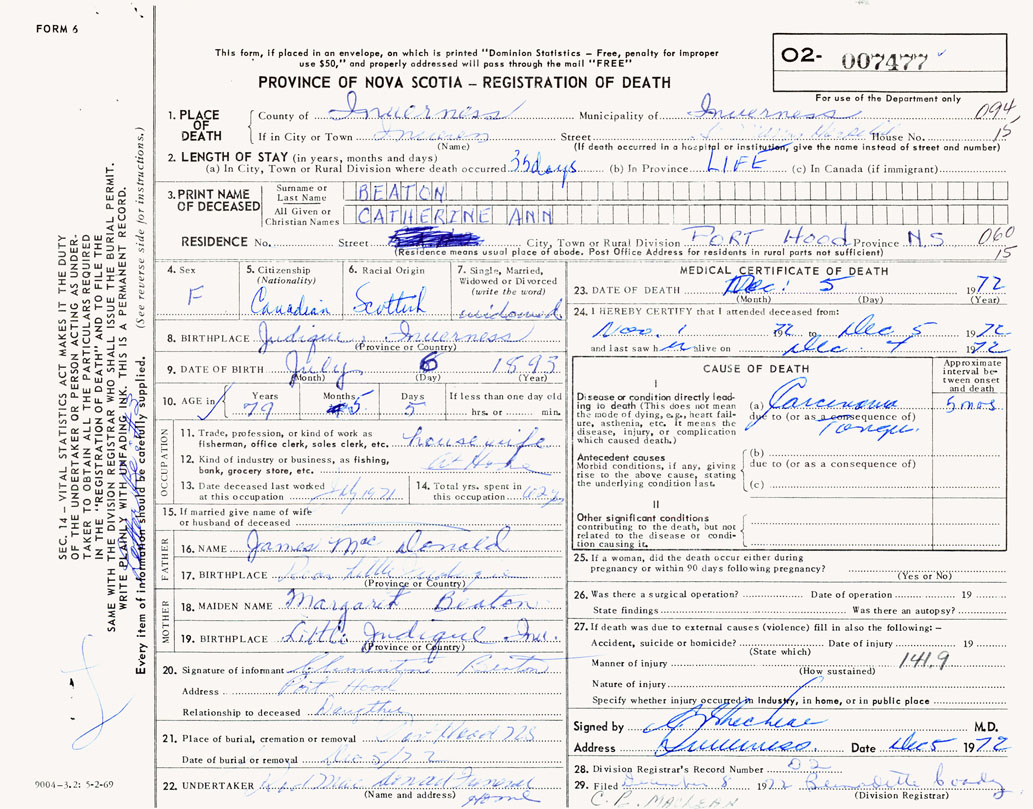 FORM 6
This form, if placed in an envelope, on which is printed "Dominion Statistics – Free, penalty for improper
use $50," and properly addressed will pass through the mail "FREE"
PROVINCE OF NOVA SCOTIA – REGISTRATION OF DEATH
O2- 007477
For use of the Department only
SEC. 14 – VITAL STATISTICS ACT MAKES IT THE DUTY
OF THE UNDERTAKER OR PERSON ACTING AS UNDER-
TAKER TO OBTAIN ALL THE PARTICULARS REQUIRED
IN THE "REGISTRATION OF DEATH" AND TO FILE THE
SAME WITH THE DIVISION REGISTRAR WHO SHALL ISSUE THE BURIAL PERMIT.
WRITE PLAINLY WITH UNFADING INK. THIS IS A PERMANENT RECORD.
Every item of information should be carefully supplied. (See reverse side for instructions.)
1. PLACE OF DEATH
County of Inverness Municipality of Inverness 094
If in City or Town Street House No. 15
(Name) (If death occurred in a hospital or institution, give the name instead of street and number)
2. LENGTH OF STAY (in years, months and days)
(a) In City, Town or Rural Division where death occurred 35 days (b) In Province LIFE (c) In Canada (if immigrant)
3. PRINT NAME OF DECEASED
Surname or Last Name BEATON
All Given or Christian Names CATHERINE ANN
RESIDENCE No. Street City, Town or Rural Division PORT HOOD Province N.S. 060
(Residence means usual place of abode. Post Office Address for residents in rural parts not sufficient) 15
4. Sex F
5. Citizenship (Nationality) Canadian
6. Racial Origin Scottish
7. Single, Married, Widowed or Divorced (write the word) widowed
8. BIRTHPLACE Judique, Inverness
(Province or Country)
9. DATE OF BIRTH July 6 1893
(Month) (Day) (Year)
10. AGE in Years 79 Months 5 Days 5 If less than one day old hrs. or min.
OCCUPATION
11. Trade, profession, or kind of work as fisherman, office clerk, sales clerk, etc. housewife
12. Kind of industry or business, as fishing, bank, grocery store, etc. At Home
13. Date deceased last worked at this occupation July 1971
14. Total yrs. spent in this occupation
15. If married give name of wife or husband of deceased
FATHER
16. NAME James Mac Donald
17. BIRTHPLACE Little Judique
(Province or Country)
MOTHER
18. MAIDEN NAME Margaret Beaton
19. BIRTHPLACE Little Judique Inv.
(Province or Country)
20. Signature of informant Beaton
Address Port Hood
Relationship to deceased Daughter
21. Place of burial, cremation or removal
Date of burial or removal Dec 5/72
22. UNDERTAKER Mac Donald Funeral Home
(Name and address)
9004-3.2: 5-2-69
MEDICAL CERTIFICATE OF DEATH
23. DATE OF DEATH Dec. 5 1972
(Month) (Day) (Year)
24. I HEREBY CERTIFY that I attended deceased from:
Nov. 1 1972 to Dec 5 1972
and last saw h er alive on Dec 4 1972
CAUSE OF DEATH
Approximate interval between onset and death
I
Disease or condition directly leading to death (This does not mean the mode of dying, e.g., heart failure, asthenia, etc. It means the disease, injury, or complication which caused death.)
(a) Carcinoma 5 mos
due to (or as a consequence of)
Tongue.
Antecedent causes
Morbid conditions, if any, giving rise to the above cause, stating the underlying condition last.
(b)
due to (or as a consequence of)
(c)
II
Other significant conditions contributing to the death, but not related to the disease or condition causing it.
25. If a woman, did the death occur either during pregnancy or within 90 days following pregnancy?
(Yes or No)
26. Was there a surgical operation? Date of operation 19
State findings Was there an autopsy?
27. If death was due to external causes (violence) fill in also the following: –
Accident, suicide or homicide? Date of injury 19
(State which)
Manner of injury 141.9
(How sustained)
Nature of injury
Specify whether injury occurred in industry, in home, or in public place
Signed by M.D.
Address Inverness Date Dec 5 1972
28. Division Registrar's Record Number 02
29. Filed December 8 1972
(Division Registrar)
C. R. MACLEAN